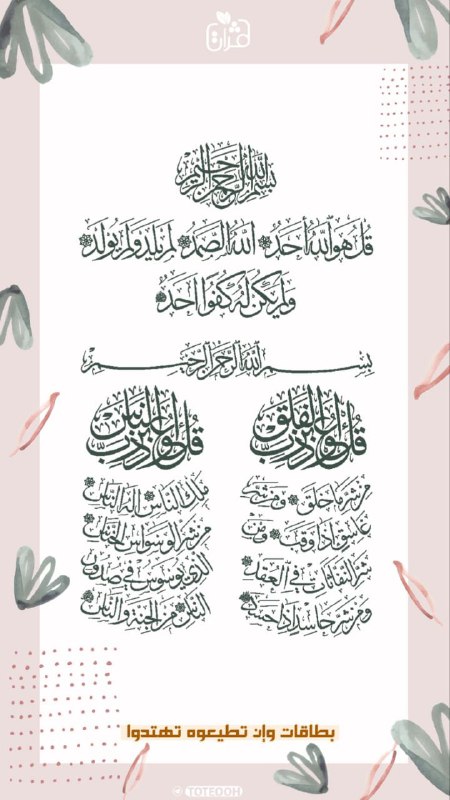 ثمرات
بسم الله الرحمن الرحيم
قُلْ هُوَ اللَّهُ أَحَدٌ اللَّهُ الصَّمَدُ لَمْ يَلِدْ وَلَمْ يُولَدْ
وَلَمْ يَكُن لَّهُ كُفُوًا أَحَدٌ
بسم الله الرحمن الرحيم
قُلْ أَعُوذُ بِرَبِّ الْفَلَقِ
من شر ما خلق ومن شر
غاسق إذا وقب ومن
شر النفاثات في العقد
ومن شر حاسد إذا حسد
قُلْ أَعُوذُ بِرَبِّ النَّاسِ
ملك الناس إله الناس
من شر الوسواس الخناس
الذي يوسوس في صدور
الناس من الجنة والناس
بطاقات وإن تطيعوه تهتدوا
TOTEOOH